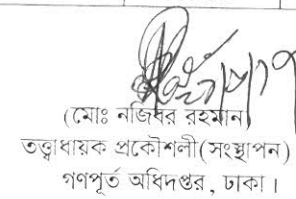 (মোঃ নজিবর রহমান)
তত্ত্বাবধায়ক প্রকৌশলী(সংস্থাপন)
গণপূর্ত অধিদপ্তর, ঢাকা।